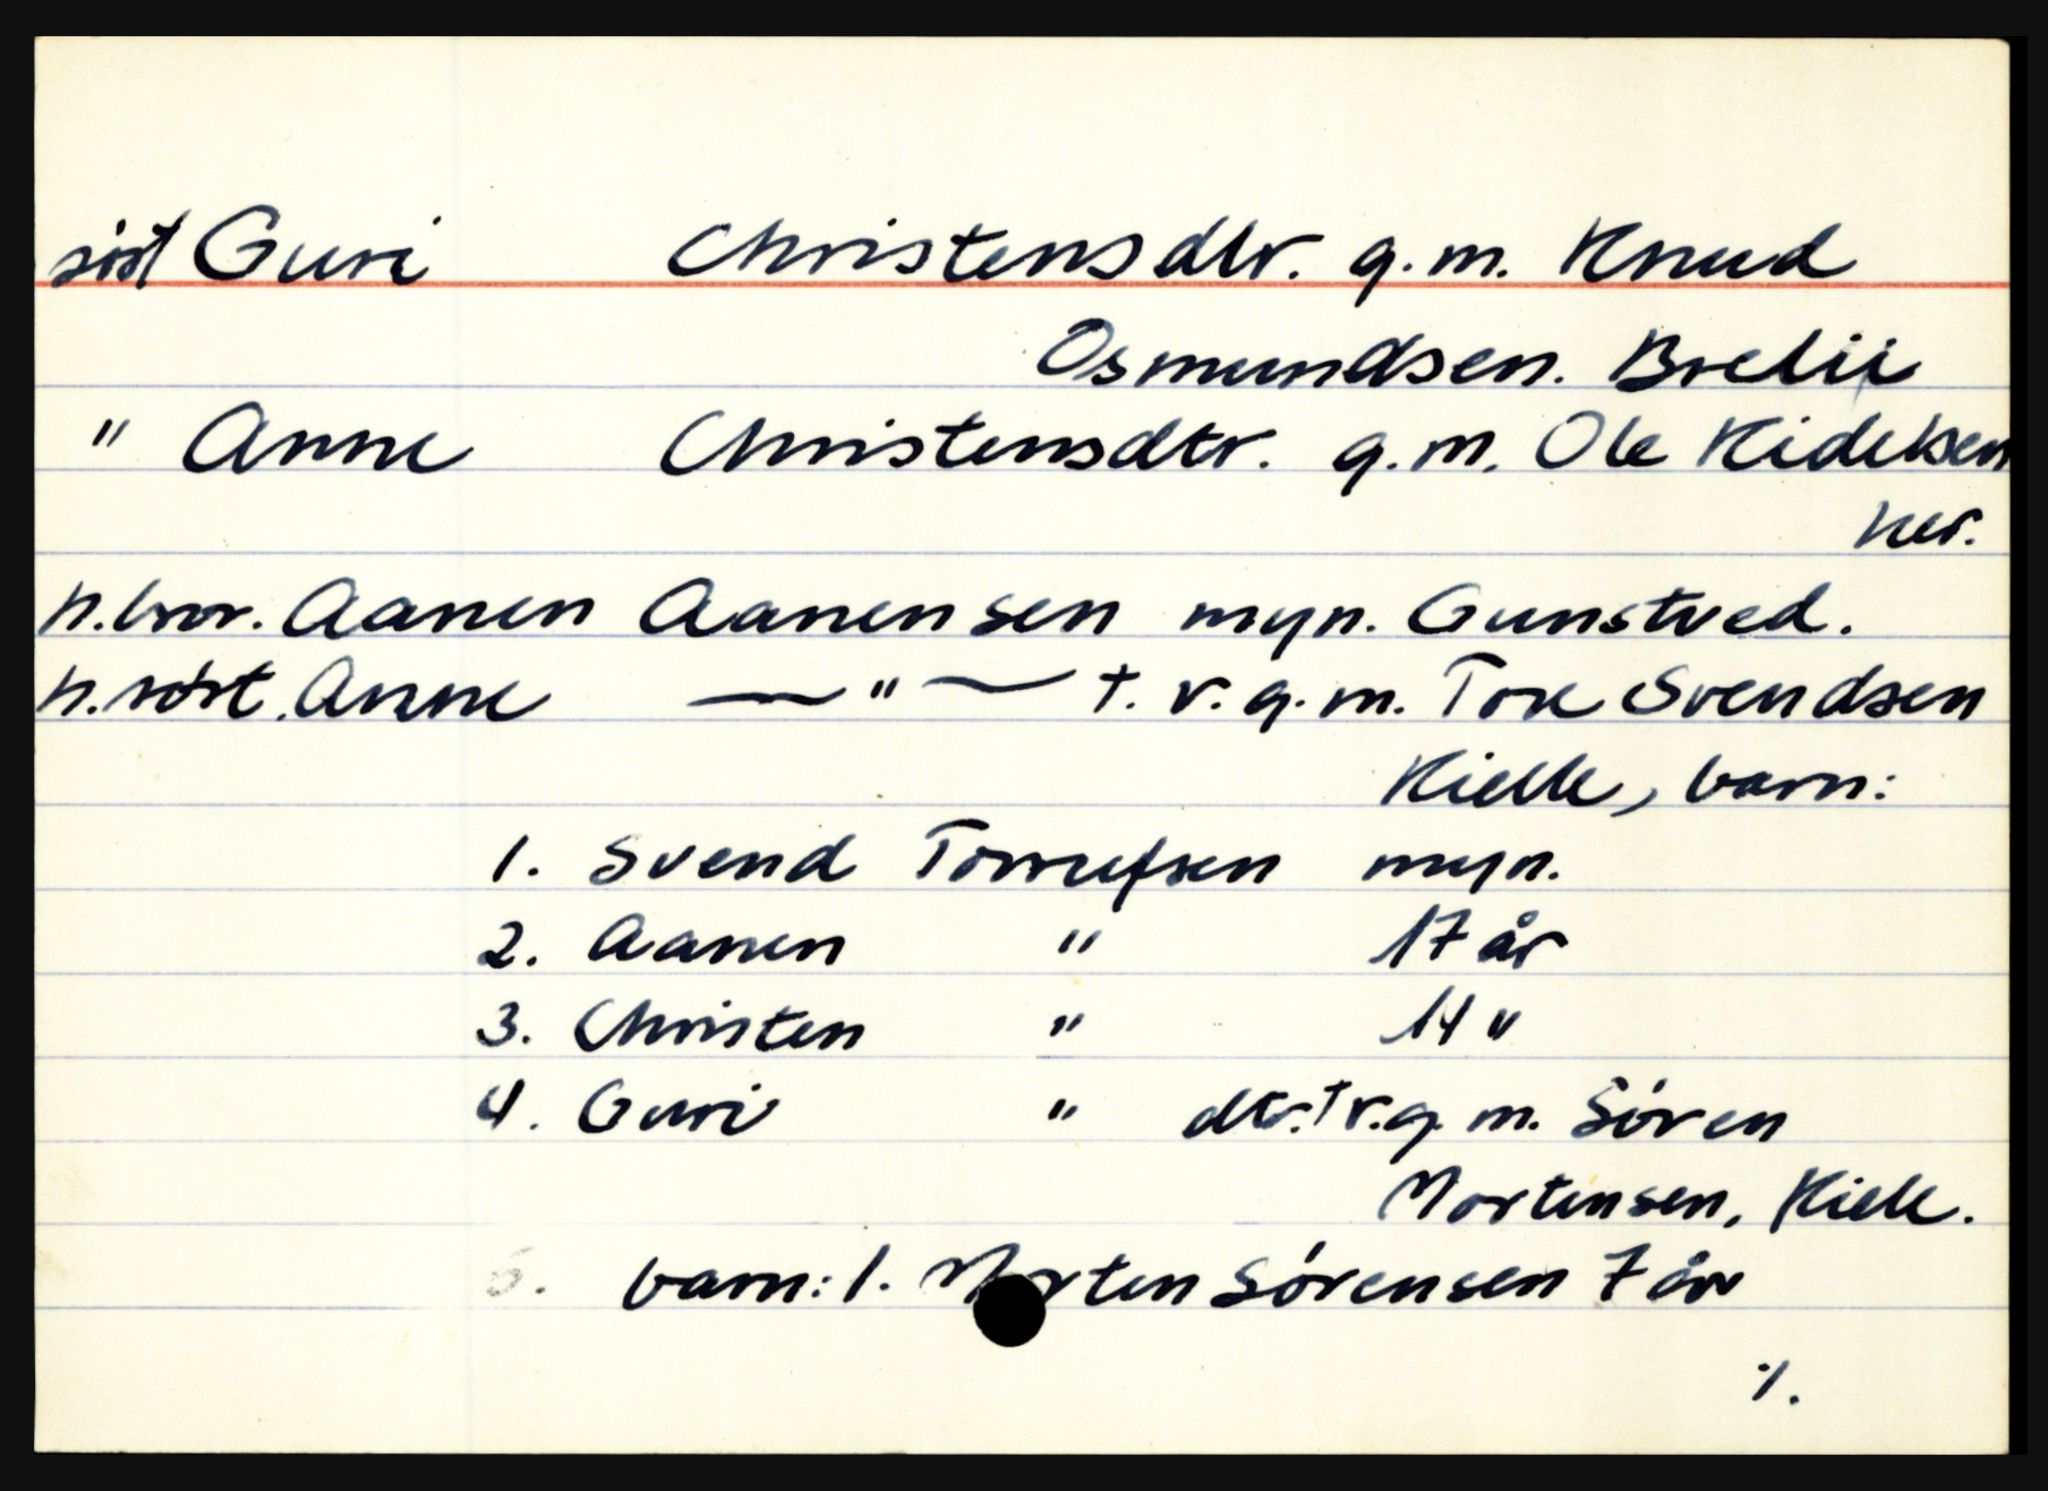 söst Guri Christensdtr. g.m. Knud
Osmundsen. Brelii
" Anne Christensdtr. g.m. Ole Kidelsen
her.
h.bror. Aanen Aanensen myn. Gunstved.
h.söst. Anne —"— †. v. g. m. Tore Svendsen
Kielle, barn:
1. Svend Torrefsen myn.
2. Aanen " 17 år
3. Christen " 14 "
4. Guri " dtr. † v. g. m. Sören
Mortensen, Kiele.
5. barn: 1. Morten Sörensen 7 år
·/.